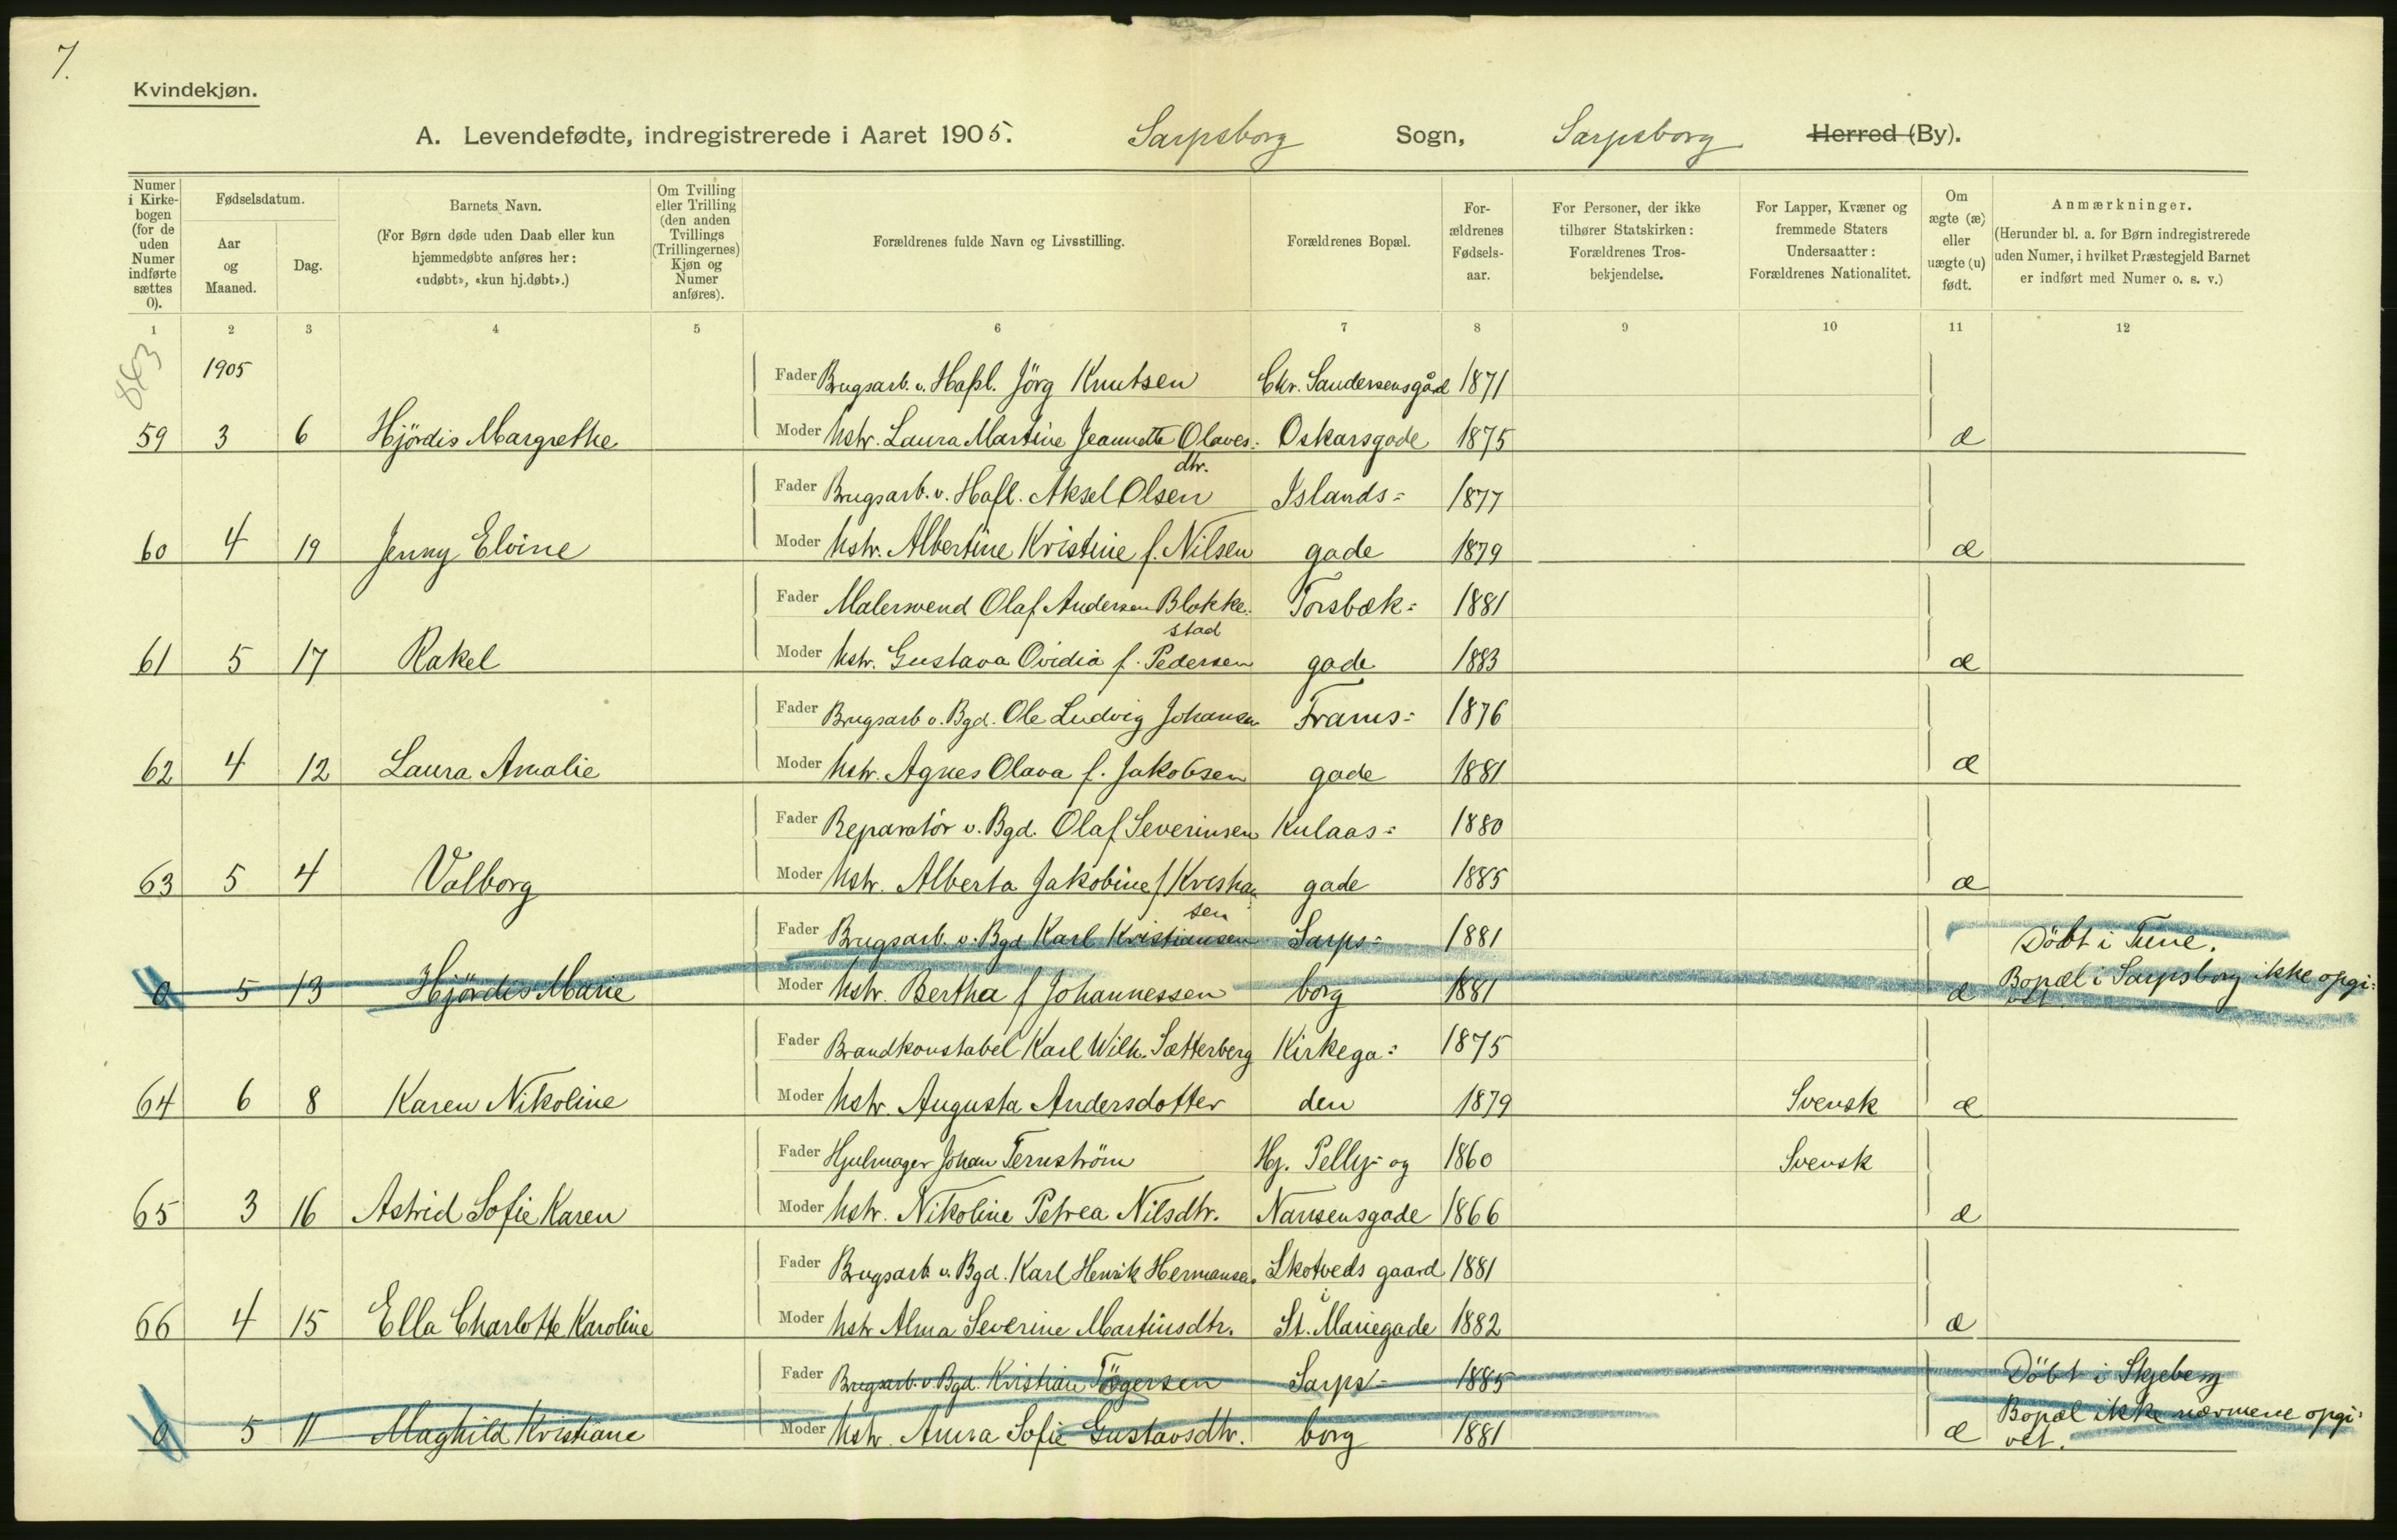 7.
Kvindekjøn.
A. Levendefødte, indregistrerede i Aaret 1905. Sarpsborg Sogn, Sarpsborg Herred (By).
Numer i Kirkebogen (for de uden Numer indførte sættes 0).
Fødselsdatum.
Aar og Maaned.
Dag.
Barnets Navn.
(For Børn døde uden Daab eller kun hjemmedøbte anføres her: «udøbt», «kun hj.døbt».)
Om Tvilling eller Trilling (den anden Tvillings (Trillingernes) Kjøn og Numer anføres).
Forældrenes fulde Navn og Livsstilling.
Forældrenes Bopæl.
For-ældrenes Fødsels-aar.
For Personer, der ikke tilhører Statskirken: Forældrenes Tros-bekjendelse.
For Lapper, Kvæner og fremmede Staters Undersaatter: Forældrenes Nationalitet.
Om ægte (æ) eller uægte (u) født.
Anmærkninger.
(Herunder bl. a. for Børn indregistrerede uden Numer, i hvilket Præstegjeld Barnet er indført med Numer o. s. v.)
1 2 3 4 5 6 7 8 9 10 11 12
863
1905 Fader Brugsarb. v. Hafsl. Jörg Knutsen Chr. Sandersensgård 1871
59 3 6 Hjördis Margrethe Moder Hstr. Laura Martine Jeannette Olaves: Oskarsgade 1875 æ
dtr.
Fader Brugsarb. v. Hafl. Aksel Olsen Islands= 1877
60 4 19 Jenny Elvine Moder Hstr. Albertine Kristine f. Nilsen gade 1879 æ
Fader Malersvend Olaf Andersen Blakke: Torsbæk= 1881
stad
61 5 17 Rakel Moder Hstr. Gustava Ovidia f. Pedersen gade 1883 æ
Fader Brugsarb v. Bgd. Ole Ludvig Johansen Frams= 1876
62 4 12 Laura Amalie Moder Hstr. Agnes Olava f. Jakobsen gade 1881 æ
Fader Reparatör v. Bgd. Olaf Severinsen Kulaas= 1880
63 5 4 Valborg Moder Hstr. Alberta Jakobine f Kristian gade 1885 æ
sen
Fader Brugsarb. v. Bgd Karl Kristiansen Sarps= 1881 Döbt i Tune.
0 5 13 Hjördis Marie Moder Hstr. Bertha f Johannessen borg 1881 æ Bopæl i Sarpsborg ikke opgi:
vet.
Fader Brandkonstabel Karl Wilh. Sætterberg Kirkega= 1875
64 6 8 Karen Nikoline Moder Hstr. Augusta Andersdotter den 1879 Svensk æ
Fader Hjulmager Johan Ternström Hj. Pelly- og 1860 Svensk
65 3 16 Astrid Sofie Karen Moder Hstr. Nikoline Petrea Nilsdtr. Nansensgade 1866 æ
Fader Brugsarb v. Bgd. Karl Henrik Hermansen Skotveds gaard 1881
66 4 15 Ella Charlotte Karoline Moder Hstr Alma Severine Martinsdtr. St. Mariegade 1882 æ
Fader Brugsarb. v Bgd. Kristian Tögersen Sarps= 1885 Döbt i Skjeberg
0 5 11 Maghild Kristiane Moder Hstr. Anna Sofie Gustavsdtr. borg 1881 æ Bopæl ikke nærmere opgi:
vet.